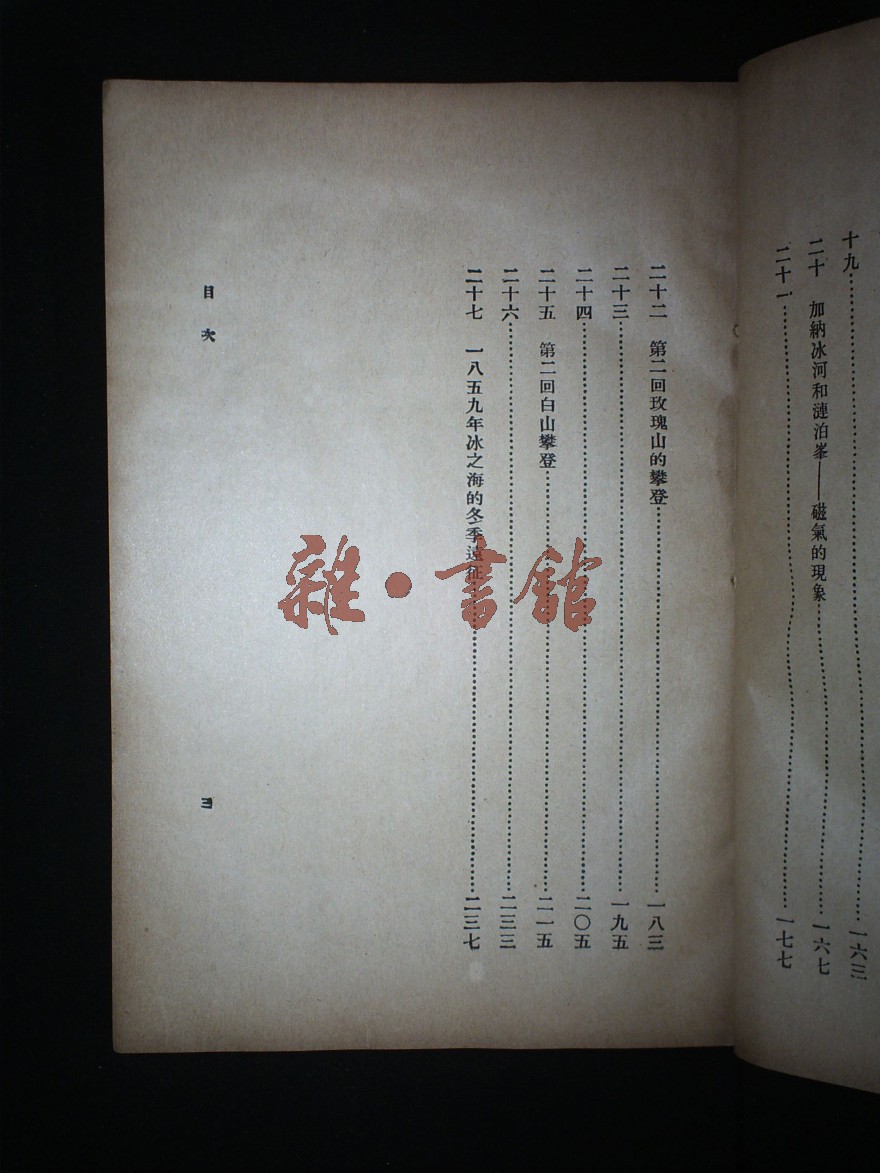 十九……一六三
二十　加納冰河和漣泊峯——磁氣的現象……一六七
二十一……一七七
二十二　第二回玫瑰山的攀登……一八三
二十三……一九五
二十四……二〇五
二十五　第二回白山攀登……二一五
二十六……二三三
二十七　一八五九年冰之海的冬季遠征……二三七
目次
三
雜·書館